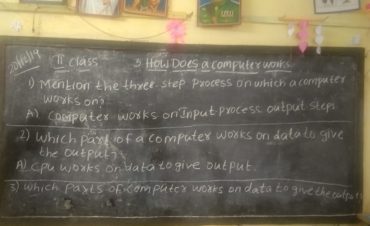 20/12/19 II class 3 How Does a computer works
1) Mention the three step process on which a computer
works on?
A) computer works on Input process output steps
2) Which part of a computer works on data to give
the output?
A) Cpu works on data to give output
3) which parts of computer works on data to give the output